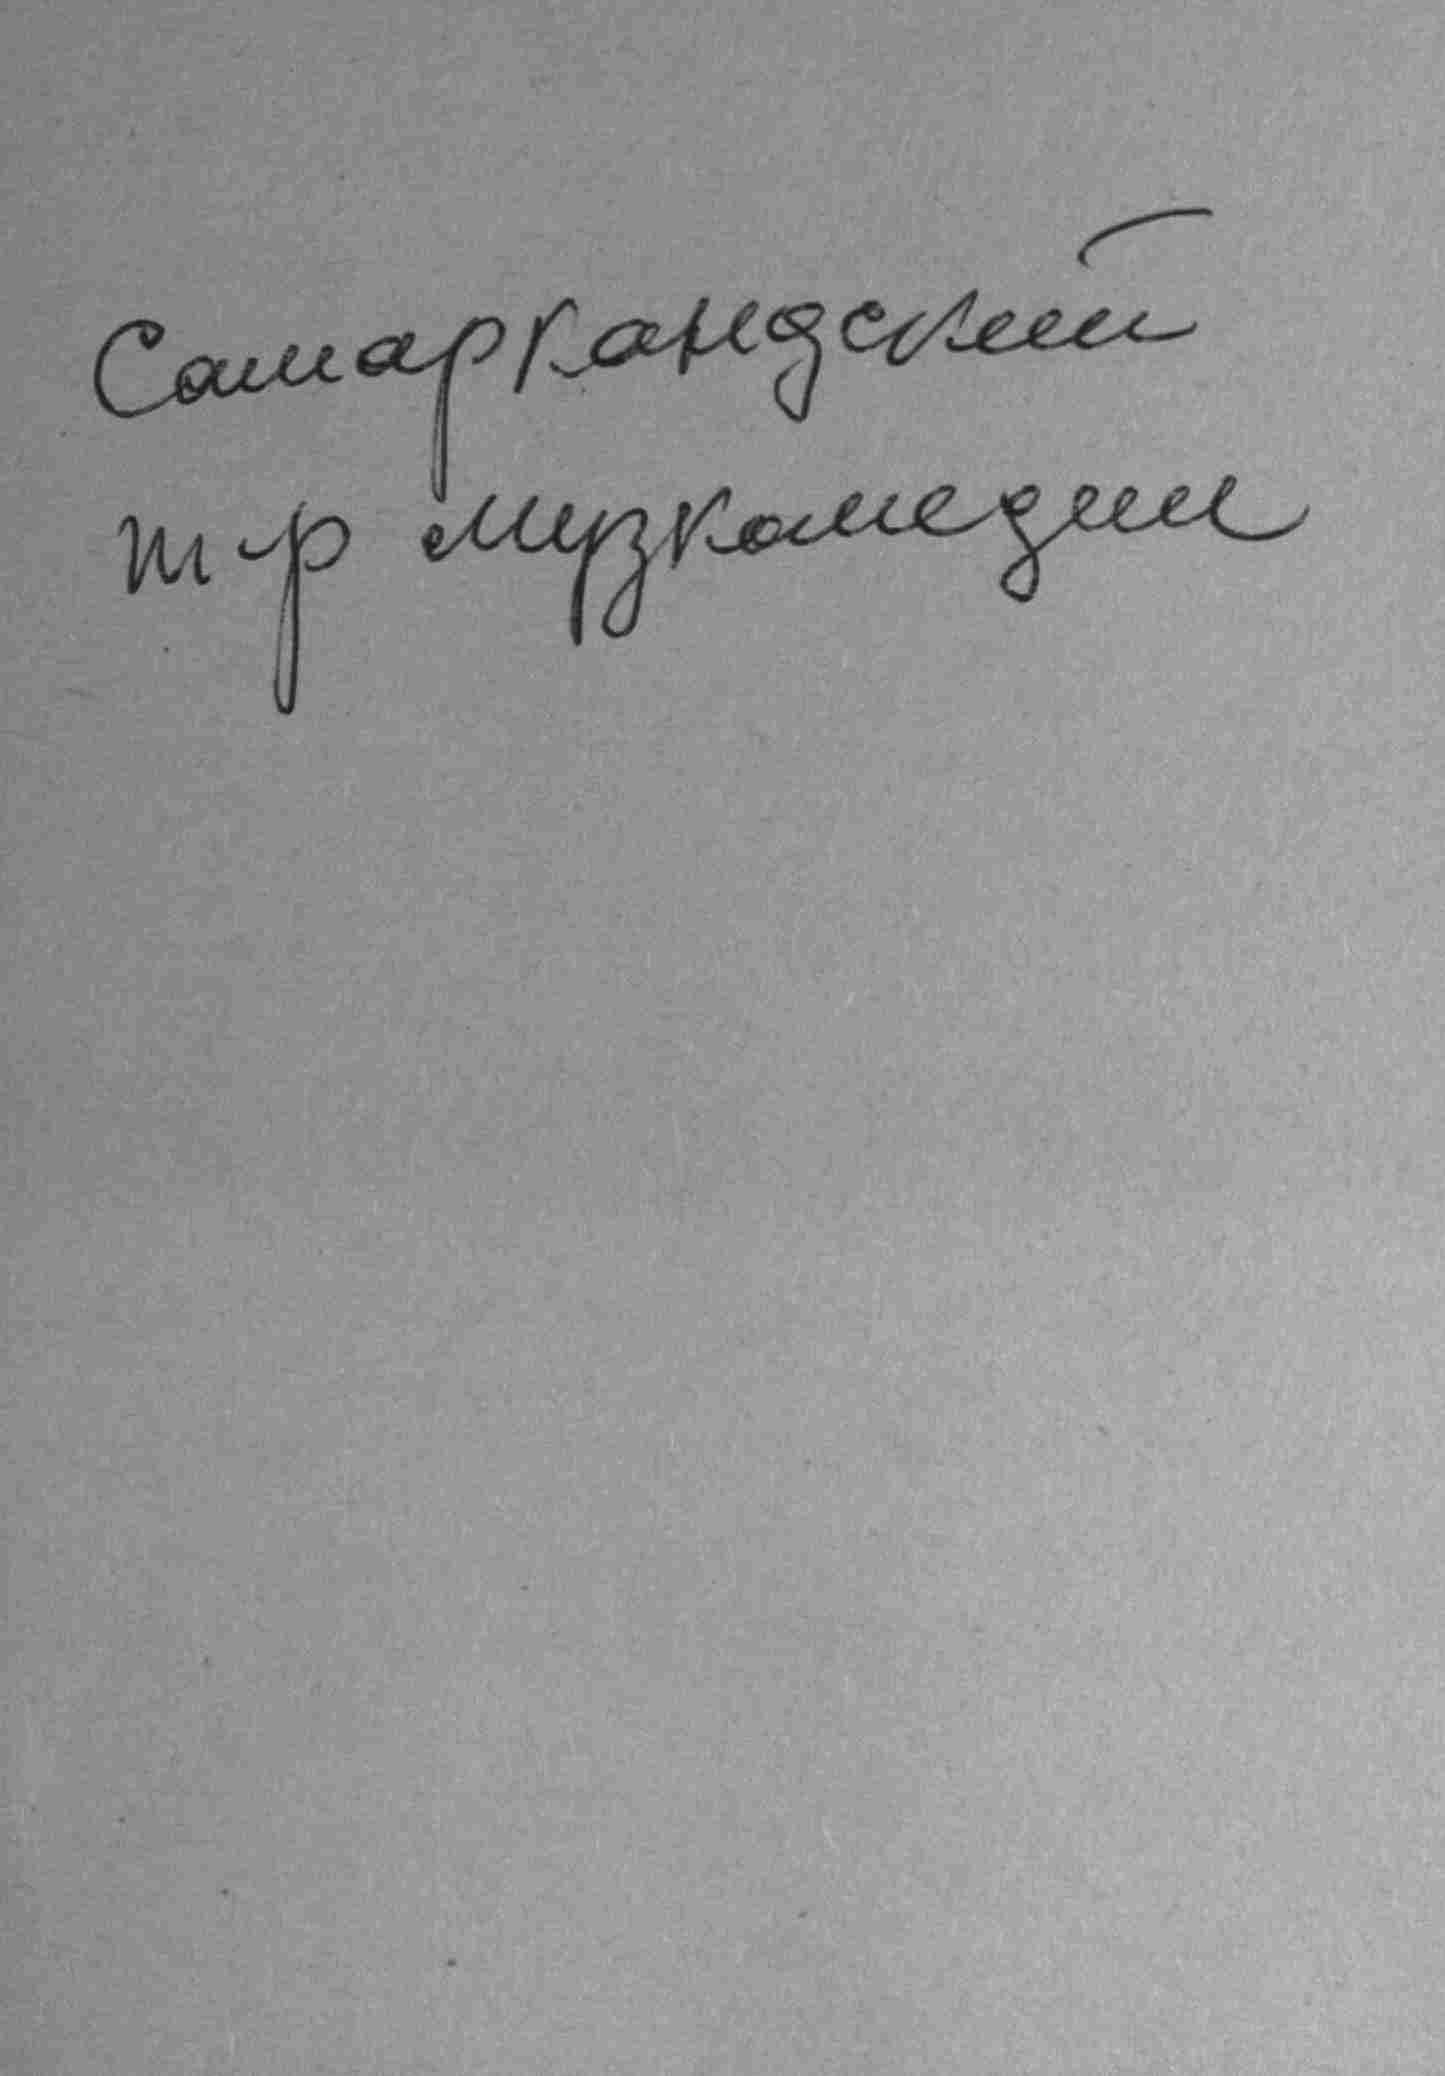 Самаркандский
т-р музкомедии